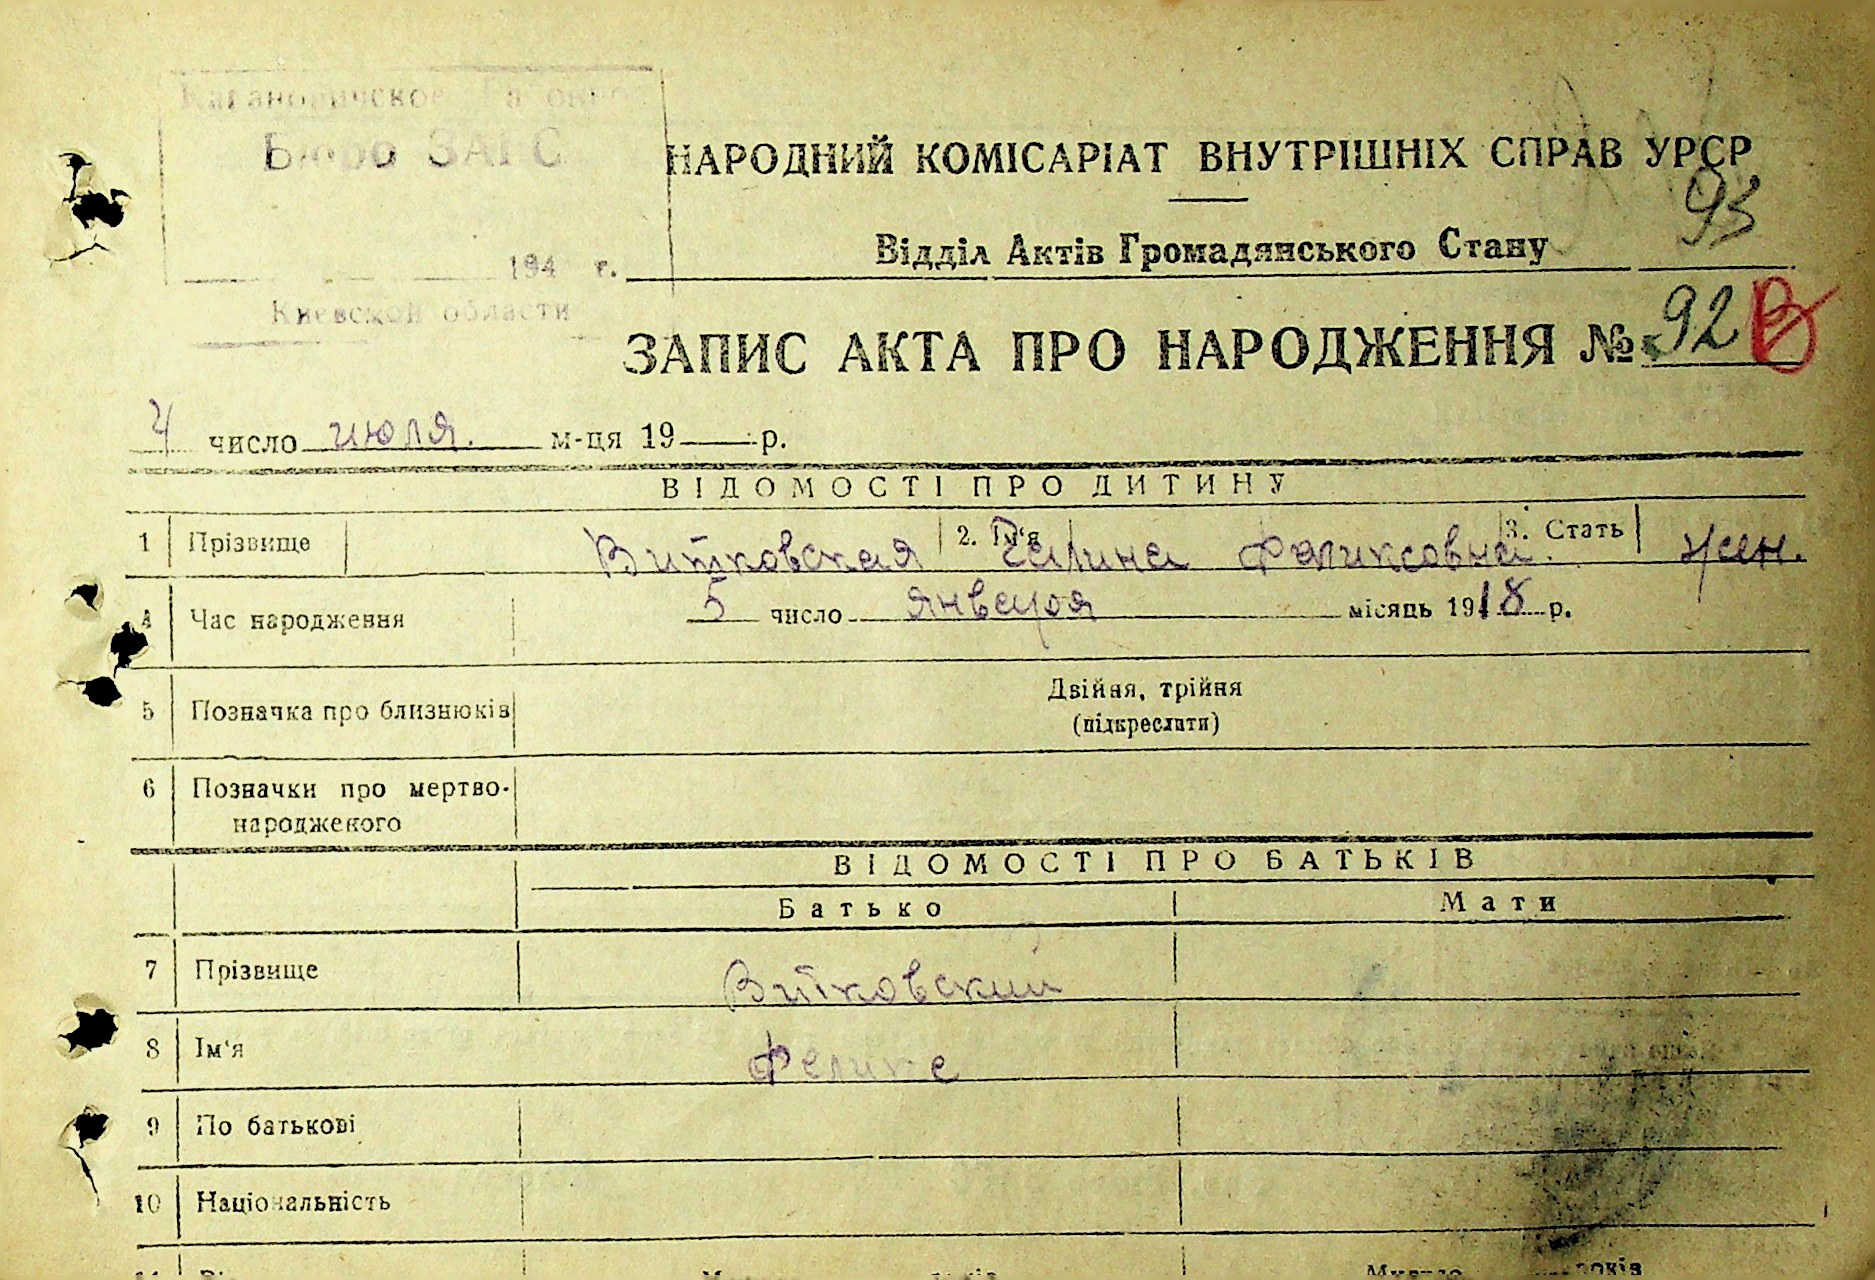 Кагановичское Районное
Бюро ЗАГС
194 г.
Киевской области
НАРОДНИЙ КОМІСАРІАТ ВНУТРІШНІХ СПРАВ УРСР
93
Відділ Актів Громадянського Стану
ЗАПИС АКТА ПРО НАРОДЖЕННЯ № 92
4 число июля. м-ця 19 р.
ВІДОМОСТІ ПРО ДИТИНУ
1 Прізвище Витковская 2. Ім'я Галина Феликсовна 3. Стать жен.
4 Час народження 5 число января місяць 1918 р.
5 Позначка про близнюків Двійня, трійня
(підкреслити)
6 Позначки про мертво-
народженого
ВІДОМОСТІ ПРО БАТЬКІВ
Батько Мати
7 Прізвище Витковский
8 Ім'я Феликс
9 По батькові
10 Національність